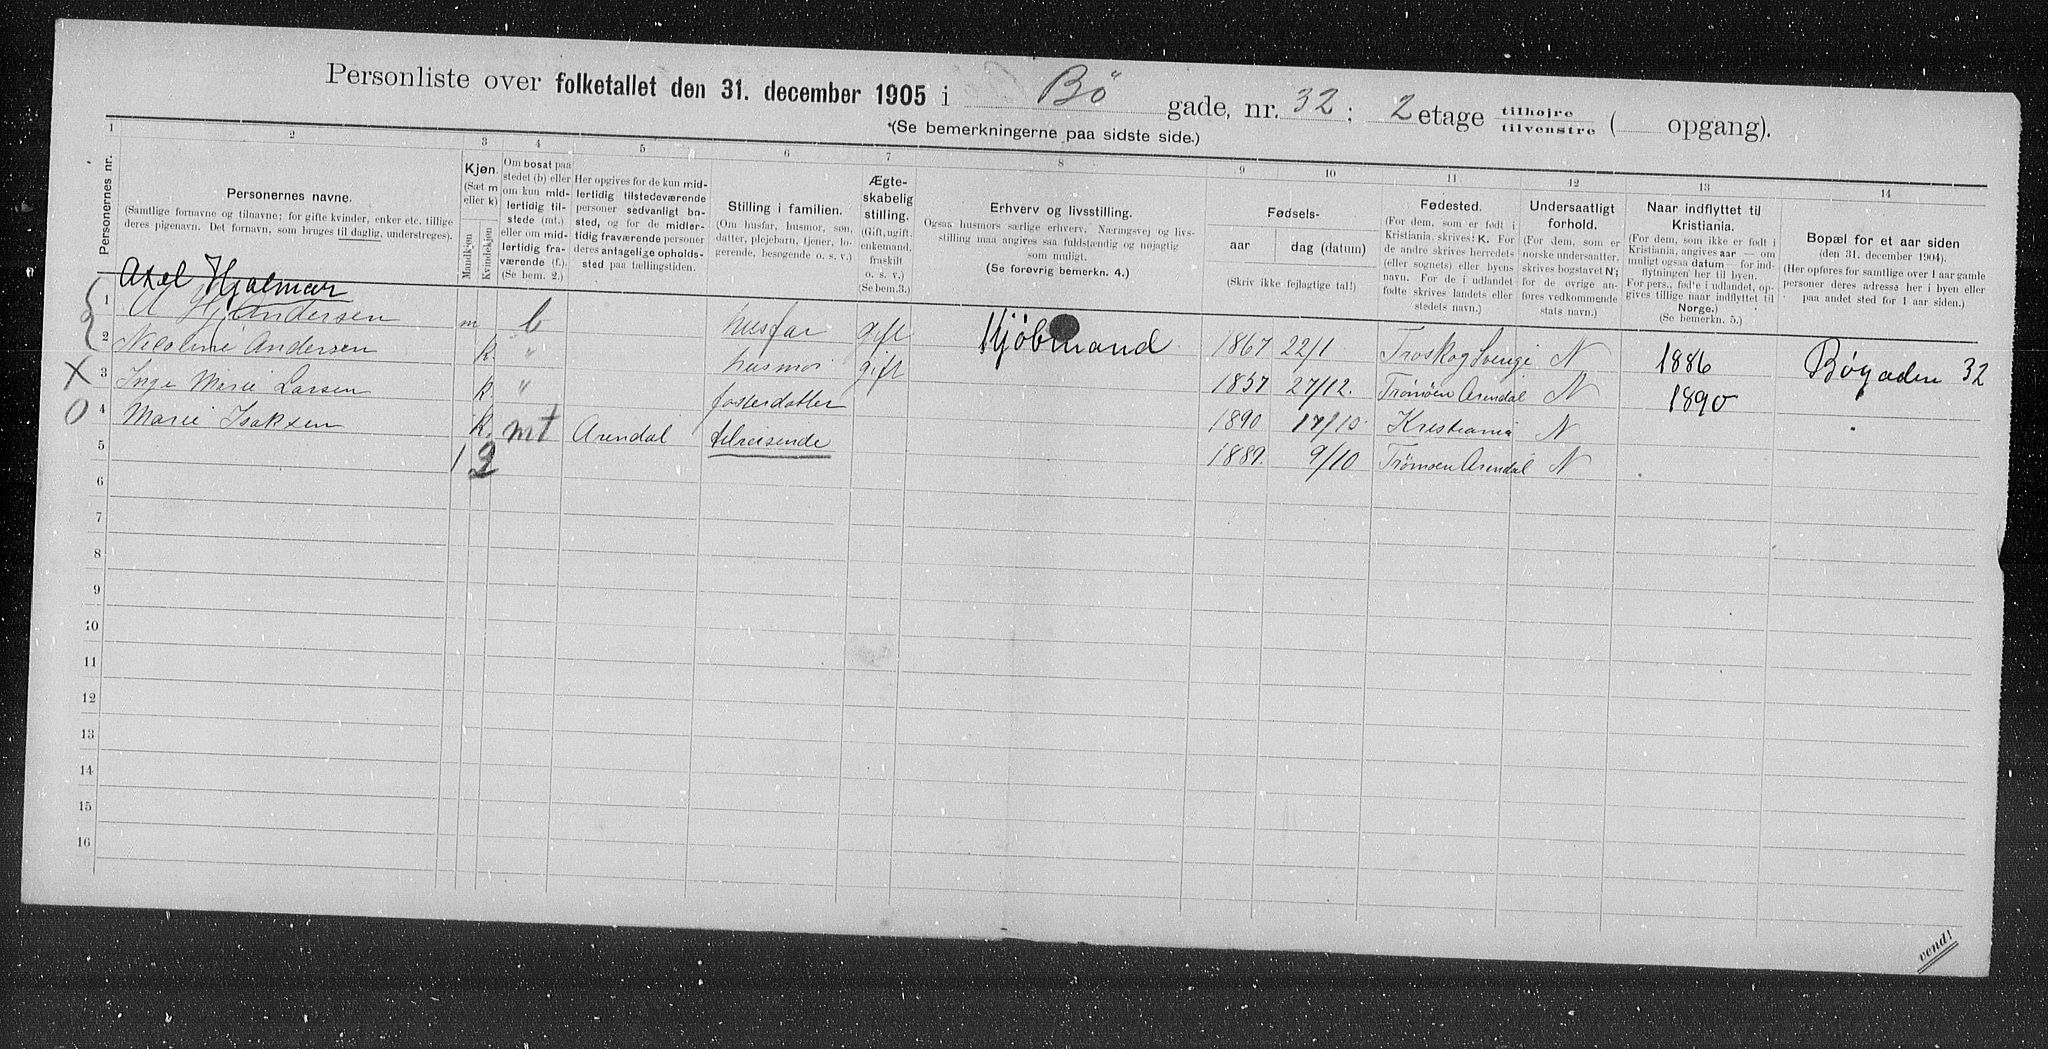 Personliste over folketallet den 31. december 1905 i Bö gade, nr. 32; 2 etage tilhøjre / tilvenstre ( opgang).
*(Se bemerkningerne paa sidste side.)
1 2 3 4 5 6 7 8 9 10 11 12 13 14
Personernes nr.
Personernes navne.
(Samtlige fornavne og tilnavne; for gifte kvinder, enker etc. tillige deres pigenavn. Det fornavn, som bruges til daglig, understreges).
Kjøn.
(Sæt m eller k)
Mandkjøn
Kvindekjøn
Om bosat paa stedet (b) eller om kun midlertidig tilstede (mt.) eller om midlertidig fraværende (f.). (Se bem. 2.)
Her opgives for de kun midlertidig tilstedeværende personer sedvanligt bosted, og for de midlertidig fraværende personer deres antagelige opholdssted paa tællingstiden.
Stilling i familien.
(Om husfar, husmor, søn, datter, plejebarn, tjener, logerende, besøgende o. s. v.)
Ægteskabelig stilling.
(Gift, ugift enkemand, fraskilt o. s. v.)
(Se bem.3.)
Erhverv og livsstilling.
Ogsaa husmors særlige erhverv. Næringsvej og livsstilling maa angives saa fuldstændig og nøjagtig som muligt.
(Se forøvrig bemerkn. 4.)
Fødsels-
aar dag (datum)
(Skriv ikke fejlagtige tal!)
Fødested.
(For dem, som er født i Kristiania, skrives: K. For de andre skrives herredets (eller sognets) eller byens navn. For de i udlandet fødte skrives landets eller stedets navn.)
Undersaatligt forhold.
(For dem, som er norske undersaatter, skrives bogstavet N; for de øvrige anføres vedkommende stats navn.)
Naar indflyttet til Kristiania.
(For dem, som ikke er født i Kristiania, angives aar — om muligt ogsaa datum — for indflytningen her til byen. For pers., fødte i udlandet, opgives tillige naar indflyttet til Norge.)
(Se bemerkn. 5.)
Bopæl for et aar siden
(den 31. december 1904).
(Her opføres for samtlige over 1 aar gamle personer deres adresse her i byen eller paa andet sted for 1 aar siden.)
Axel Hjalmar
1 A Hj Andersen m b husfar gift Kjöbmand 1867 22/1 Troskog Sverige N 1886 Bögaden 32
2 Nicoline Andersen k. " husmor gift 1857 27/12. Tromöen Arendal N 1890
X 3 Inga Marie Larsen k. " fosterdatter 1890 17/10. Kristiania N
O 4 Marie Isaksen k. mt Arendal tilreisende 1889. 9/10 Tromöen Arendal N
5 1 2
6
7
8
9
10
11
12
13
14
15
16
vend!